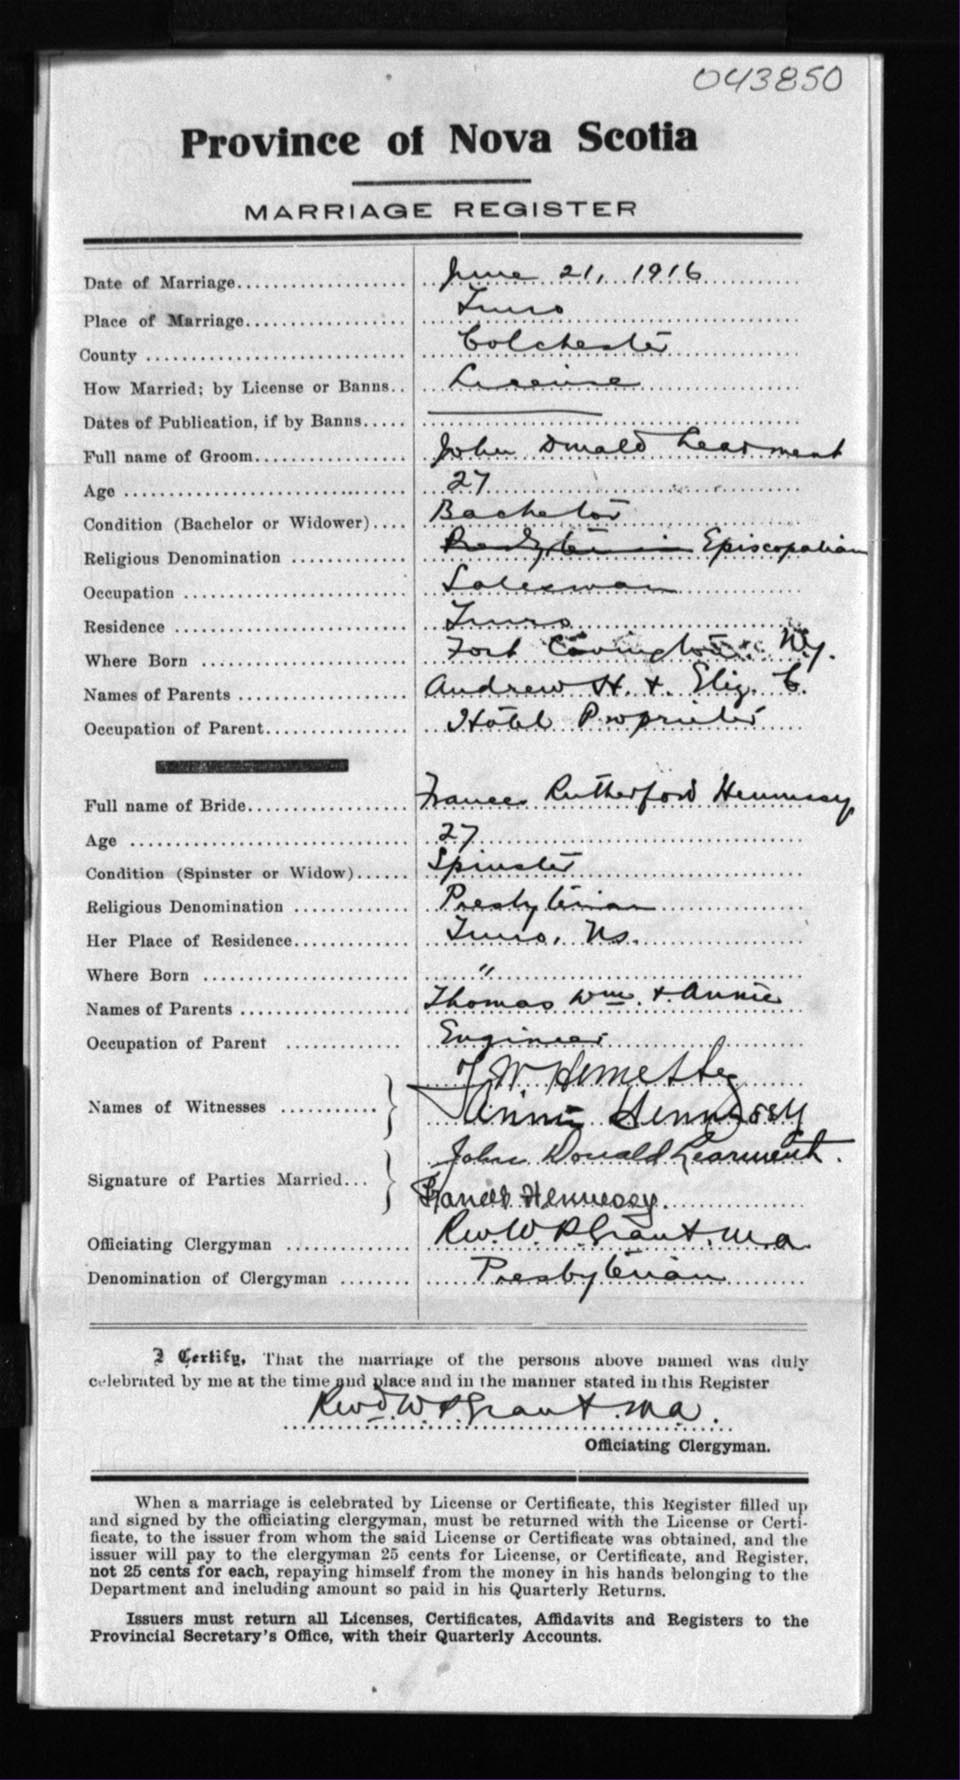 043850
Province of Nova Scotia
MARRIAGE REGISTER
Date of Marriage................... June 21, 1916
Place of Marriage.................. Truro
County ............................ Colchester
How Married; by License or Banns.. License
Dates of Publication, if by Banns.....
Full name of Groom................. John Donald Learment
Age ............................... 27
Condition (Bachelor or Widower).... Bachelor
Religious Denomination ............ Presbyterian Episcopalian
Occupation ........................ Salesman
Residence ......................... Truro
Where Born ........................ Fort Covington N.Y.
Names of Parents .................. Andrew H. + Eliz. C.
Occupation of Parent................ Hotel Proprietor
Full name of Bride................. Frances Rutherford Hennessy
Age ............................... 27
Condition (Spinster or Widow)...... Spinster
Religious Denomination ............ Presbyterian
Her Place of Residence............. Truro, NS.
Where Born ........................ "
Names of Parents .................. Thomas Wm. + Annie
Occupation of Parent .............. Engineer
Names of Witnesses ........... T W Hennessy
Annie Hennessy
Signature of Parties Married... John Donald Learment.
Frances Hennessy.
Officiating Clergyman ............. Rev. W. P. Grant. M.A.
Denomination of Clergyman ........ Presbyterian
I Certify, That the marriage of the persons above named was duly
celebrated by me at the time and place and in the manner stated in this Register
Revd. W. P. Grant. M.A.
Officiating Clergyman.
When a marriage is celebrated by License or Certificate, this Register filled up
and signed by the officiating clergyman, must be returned with the License or Certi-
ficate, to the issuer from whom the said License or Certificate was obtained, and the
issuer will pay to the clergyman 25 cents for License, or Certificate, and Register,
not 25 cents for each, repaying himself from the money in his hands belonging to the
Department and including amount so paid in his Quarterly Returns.
Issuers must return all Licenses, Certificates, Affidavits and Registers to the
Provincial Secretary's Office, with their Quarterly Accounts.